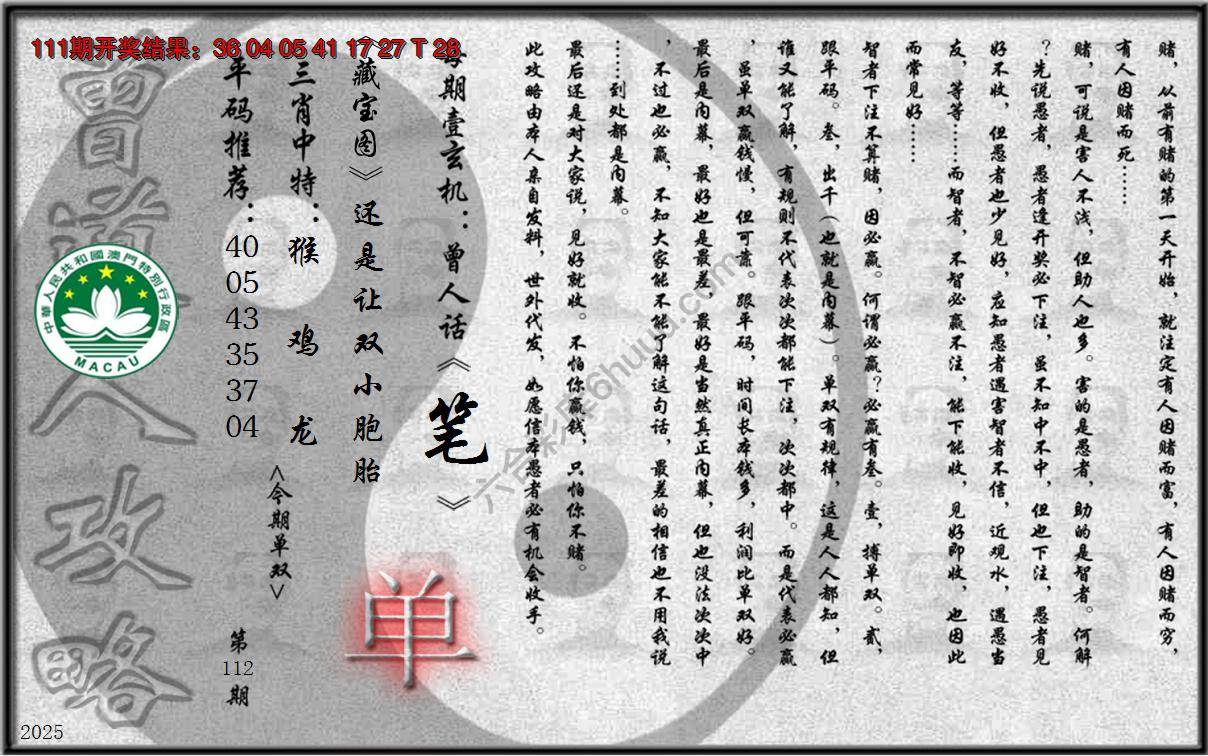 111期开奖结果：36 04 05 41 17 27 T 28
赌，从前有赌的第一天开始，就注定有人因赌而富，有人因赌而穷，
有人因赌而死……
赌，可说是害人不浅，但助人也多。害的是愚者，助的是智者。何解
？先说愚者，愚者逢开奖必下注，虽不知中不中，但也下注，愚者见
好不收，但愚者也少见好，应知愚者遇害智者不信，近观水，遇愚当
友，等等……而智者，不智必赢不注，能下能收，见好即收，也因此
而常见好……
智者下注不算赌，因必赢。何谓必赢？必赢有叁。壹，搏单双。贰，
跟平码。叁，出千（也就是内幕）。单双有规律，这是人人都知，但
谁又能了解，有规则不代表次次都能下注，次次都中。而是代表必赢
，虽单双赢钱慢，但可靠。跟平码，时间长本钱多，利润比单双好。
最后是内幕，最好也是最差，最好是当然真正内幕，但也没法次次中
，不过也必赢，不知大家能不能了解这句话，最差的相信也不用我说
……到处都是内幕。
最后还是对大家说，见好就收。不怕你赢钱，只怕你不赌。
此攻略由本人亲自发料，世外代发，如愿信本愚者必有机会收手。
每期壹玄机：曾人话《笔》
《藏宝图》还是让双小胞胎
单
三肖中特：猴 鸡 龙
<今期单双>
平码推荐：
40
05
43
35
37
04
第
112
期
曾道人攻略
中華人民共和國澳門特別行政區
MACAU
2025